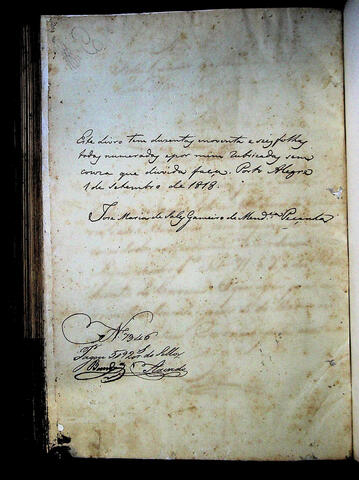 Este Livro tem duzentas noventa e seis folhas
todas numeradas e por mim rubricadas, sem
couza que duvida faça. Porto Alegre
1 de Setembro de 1818.
José Maria de Salz Gameiro de Mend.ça Peçanha
Nº 1346
Pagou 5920 rs. de Sello